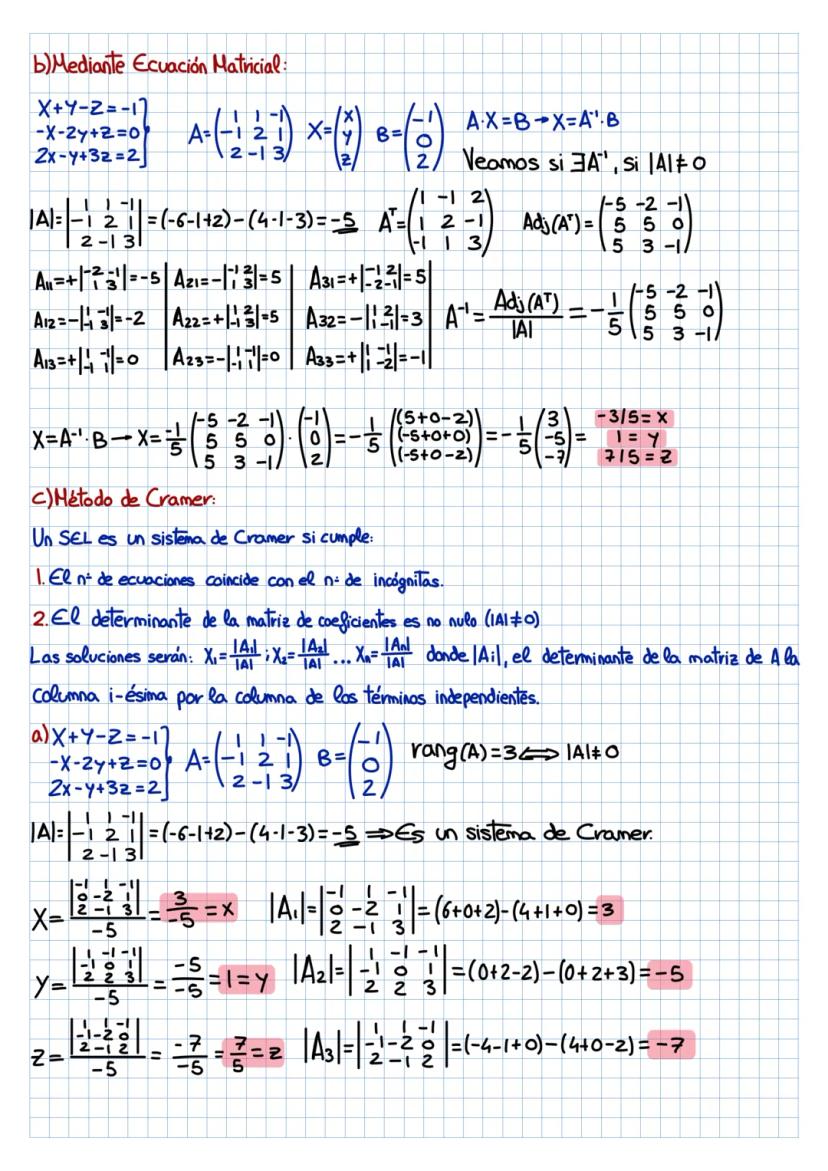 b) Mediante Ecuación Matricial:
X+Y-Z=-1
-X-2y+z=0
2x-y+3z=2
A=(1 1 -1 / -1 2 1 / 2 -1 3) X=(x / y / z) B=(-1 / 0 / 2) A·X=B→X=A⁻¹·B
Veamos si ∃A⁻¹, si |A|≠0
|A|=|1 1 -1 / -1 2 1 / 2 -1 3|=(-6-1+2)-(4-1-3)=-5 Aᵀ=(1 -1 2 / 1 2 -1 / -1 1 3) Adj(Aᵀ)=(-5 -2 -1 / 5 5 0 / 5 3 -1)
A11=+|-2 -1 / 1 3|=-5 A21=-|-1 2 / 1 3|=5 A31=+|-1 2 / -2 -1|=5
A12=-|1 -1 / -1 3|=-2 A22=+|1 2 / -1 3|=5 A32=-|1 2 / 1 -1|=3 A⁻¹=Adj(Aᵀ)/|A|=-1/5(-5 -2 -1 / 5 5 0 / 5 3 -1)
A13=+|1 -1 / -1 1|=0 A23=-|1 -1 / -1 1|=0 A33=+|1 -1 / 1 -2|=-1
X=A⁻¹·B→X=-1/5(-5 -2 -1 / 5 5 0 / 5 3 -1)·(-1 / 0 / 2)=-1/5((5+0-2) / (-5+0+0) / (-5+0-2))=-1/5(3 / -5 / -7)=
-3/5=x
1=y
7/5=z
c) Método de Cramer:
Un SEL es un sistema de Cramer si cumple:
1. El nº de ecuaciones coincide con el nº de incógnitas.
2. El determinante de la matriz de coeficientes es no nulo (|A|≠0)
Las soluciones serán: X₁=|A₁|/|A|; X₂=|A₂|/|A| ... Xₙ=|Aₙ|/|A| donde |Ai|, el determinante de la matriz de A la
columna i-ésima por la columna de los términos independientes.
a) X+Y-Z=-1
-X-2y+z=0
2x-y+3z=2
A=(1 1 -1 / -1 2 1 / 2 -1 3) B=(-1 / 0 / 2) rang(A)=3⟺|A|≠0
|A|=|1 1 -1 / -1 2 1 / 2 -1 3|=(-6-1+2)-(4-1-3)=-5⇒Es un sistema de Cramer.
X=|-1 1 -1 / 0 -2 1 / 2 -1 3|/-5=3/-5=x |A₁|=|-1 1 -1 / 0 -2 1 / 2 -1 3|=(6+0+2)-(4+1+0)=3
Y=|1 -1 -1 / -1 0 1 / 2 2 3|/-5=-5/-5=1=y |A₂|=|1 -1 -1 / -1 0 1 / 2 2 3|=(0+2-2)-(0+2+3)=-5
Z=|1 1 -1 / -1 -2 0 / 2 -1 2|/-5=-7/-5=7/5=z |A₃|=|1 1 -1 / -1 -2 0 / 2 -1 2|=(-4-1+0)-(4+0-2)=-7